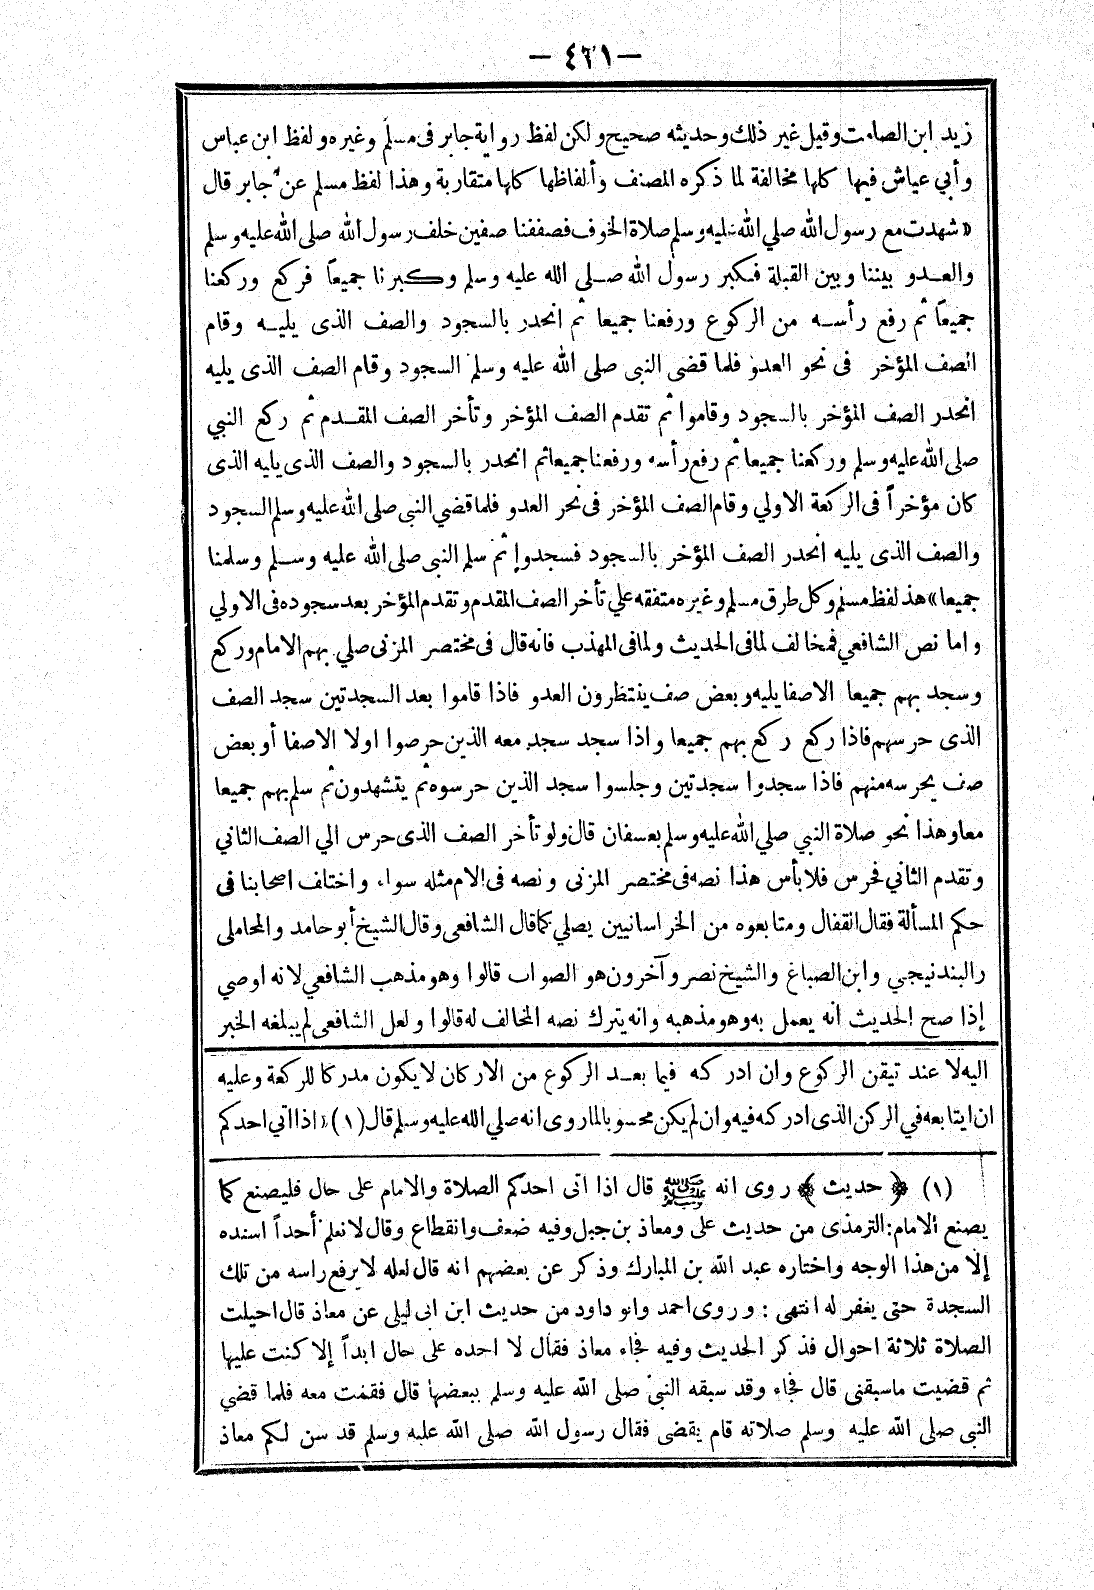 — ٤٢١ —
زيد ابن الصامت وقيل غير ذلك وحديثه صحيح ولكن لفظ رواية جابر فى مسلم وغيره ولفظ ابن عباس
وأبي عياش فيها كلها مخالفة لما ذكره المصنف وألفاظها كلها متقاربة وهذا لفظ مسلم عن جابر قال
« شهدت مع رسول الله صلي الله عليه وسلم صلاة الخوف فصففنا صفين خلف رسول الله صلى الله عليه وسلم
والعـدو بيننا وبين القبلة فكبر رسول الله صـلى الله عليه وسلم وكبرنا جميعاً فركع وركعنا
جميعاً ثم رفع رأسـه من الركوع ورفعنا جميعا ثم انحدر بالسجود والصف الذى يليـه وقام
الصف المؤخر فى نحو العدو فلما قضى النبى صلى الله عليه وسلم السجود وقام الصف الذى يليه
انحدر الصف المؤخر بالسجود وقاموا ثم تقدم الصف المؤخر وتأخر الصف المقـدم ثم ركع النبي
صلى الله عليه وسلم وركعنا جميعا ثم رفع رأسه ورفعنا جميعا ثم انحدر بالسجود والصف الذى يليه الذى
كان مؤخراً فى الركعة الاولي وقام الصف المؤخر فى نحر العدو فلما قضي النبى صلى الله عليه وسلم السجود
والصف الذى يليه انحدر الصف المؤخر بالسجود فسجدوا ثم سلم النبى صلى الله عليه وسـلم وسلمنا
جميعا» هذ لفظ مسلم وكل طرق مسلم وغيره متفقه علي تأخر الصف المقدم وتقدم المؤخر بعد سجوده فى الاولي
واما نص الشافعي فمخالف لما فى الحديث ولما فى المهذب فانه قال فى مختصر المزنى صلي بهم الامام وركع
وسجد بهم جميعا الاصفا يليه وبعض صف ينتظرون العدو فاذا قاموا بعد السجدتين سجد الصف
الذى حرسهم فاذا ركع ركع بهم جميعا واذا سجد سجد معه الذين حرصوا اولا الاصفا أو بعض
صف يحرسه منهم فاذا سجدوا سجدتين وجلسوا سجد الذين حرسوه ثم يتشهدون ثم سلم بهم جميعا
معا وهذا نحو صلاة النبي صلي الله عليه وسلم بعسفان قال ولو تأخر الصف الذى حرس الي الصف الثاني
وتقدم الثاني فحرس فلا بأس هذا نصه فى مختصر المزنى ونصه فى الام مثله سواء واختلف اصحابنا فى
حكم المسألة فقال القفال ومتابعوه من الخراسانيين يصلي كما قال الشافعى وقال الشيخ أبو حامد والمحاملى
والبندنيجي وابن الصباغ والشيخ نصر وآخرون هو الصواب قالوا وهو مذهب الشافعي لانه اوصي
إذا صح الحديث أنه يعمل به وهو مذهبه وانه يترك نصه المخالف له قالوا ولعل الشافعى لم يبلغه الخبر
اليه لا عند تيقن الركوع وان ادركه فيما بعـد الركوع من الاركان لا يكون مدركا للركعة وعليه
ان ايتابعه في الركن الذى ادركه فيه وان لم يكن محسوبا لما روى انه صلي الله عليه وسلم قال (١) «اذا اتي احدكم
(١) ﴿ حديث ﴾ روى انه ﷺ قال اذا اتى احدكم الصلاة والامام على حال فليصنع كما
يصنع الامام : الترمذى من حديث على ومعاذ بن جبل وفيه ضعف وانقطاع وقال لا نعلم أحداً اسنده
إلا من هذا الوجه واختاره عبد الله بن المبارك وذكر عن بعضهم انه قال لعله لا يرفع راسه من تلك
السجدة حتى يغفر له انتهى : وروى احمد وابو داود من حديث ابن ابى ليلى عن معاذ قال احيلت
الصلاة ثلاثة احوال فذكر الحديث وفيه فجاء معاذ فقال لا احده على حال ابداً إلا كنت عليها
ثم قضيت ماسبقنى قال فجاء وقد سبقه النبى صلى الله عليه وسلم ببعضها قال فقمت معه فلما قضي
النبى صلى الله عليه وسلم صلاته قام يقضى فقال رسول الله صلى الله عليه وسلم قد سن لكم معاذ